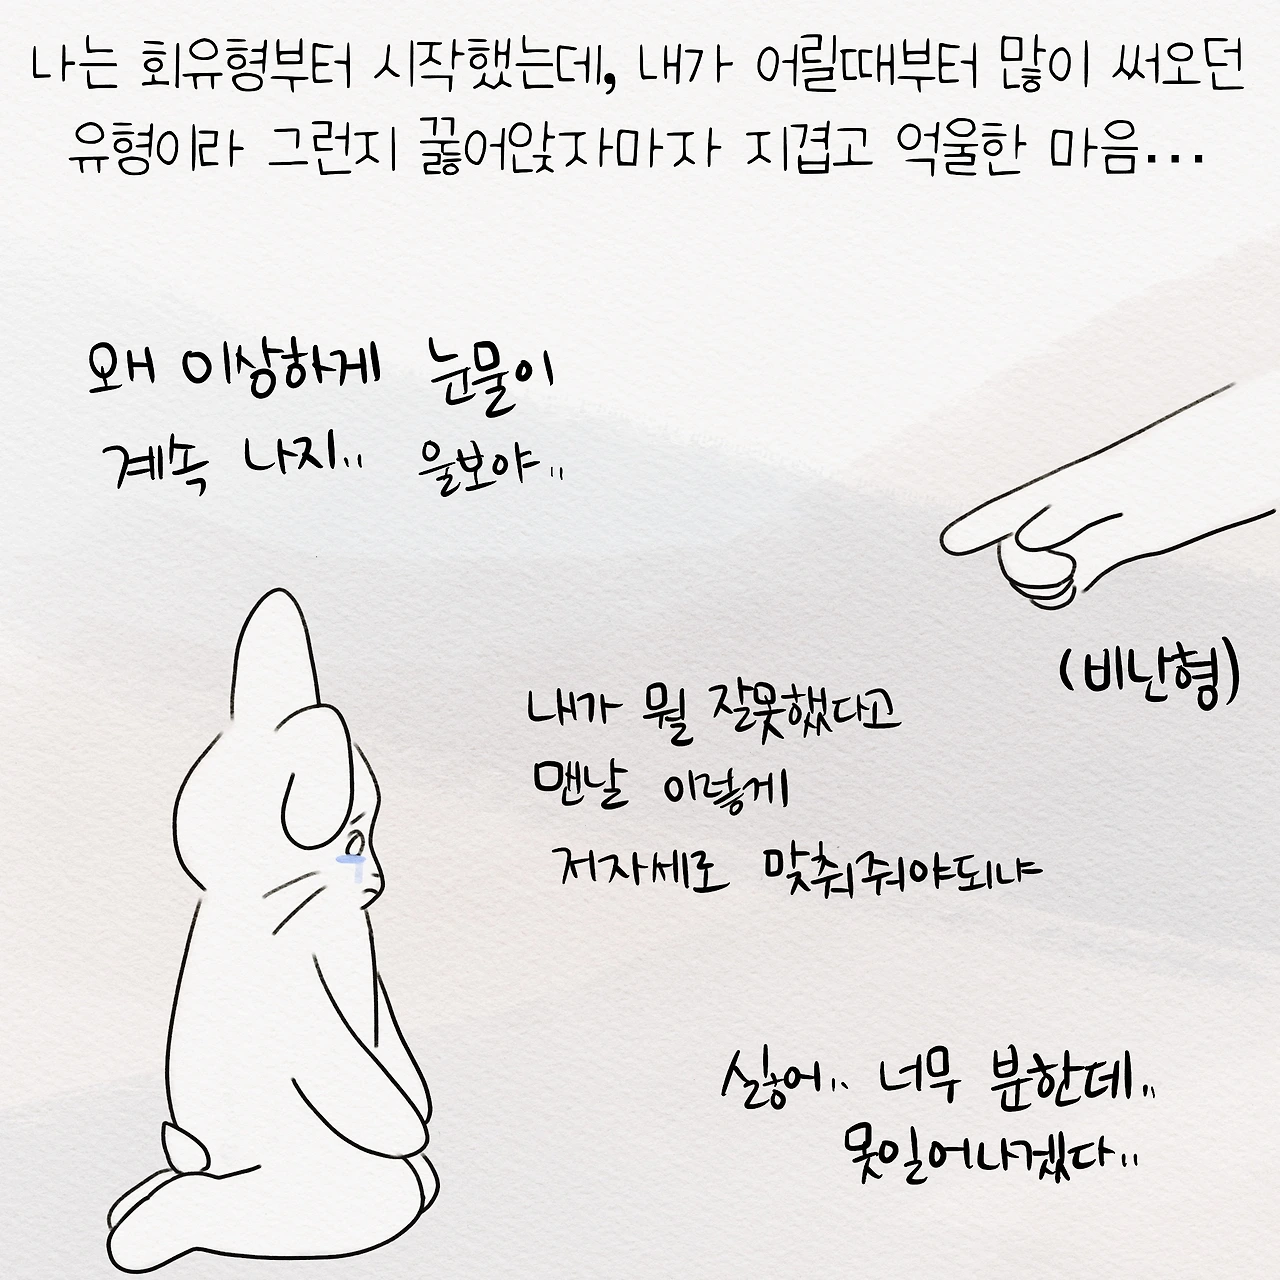 나는 회유형부터 시작했는데, 내가 어릴때부터 많이 써오던
유형이라 그런지 꿇어앉자마자 지겹고 억울한 마음...
왜 이상하게 눈물이
계속 나지.. 울보야..
(비난형)
내가 뭘 잘못했다고
맨날 이렇게
저자세로 맞춰줘야되냐
싫어.. 너무 분한데..
못일어나겠다..